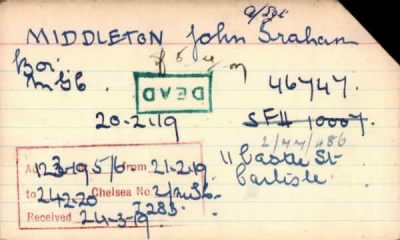 a/Sgt
MIDDLETON John Graham
Bor:
M.G.C. 46747.
DEAD
20-2-19 SFH 10007.
2/MM/486
11 Castle St-
Carlisle
12-3-19 5/6 from 21-2-19
to 24-2-20 Chelsea No. 2/M
7283.
Received 24-3-19